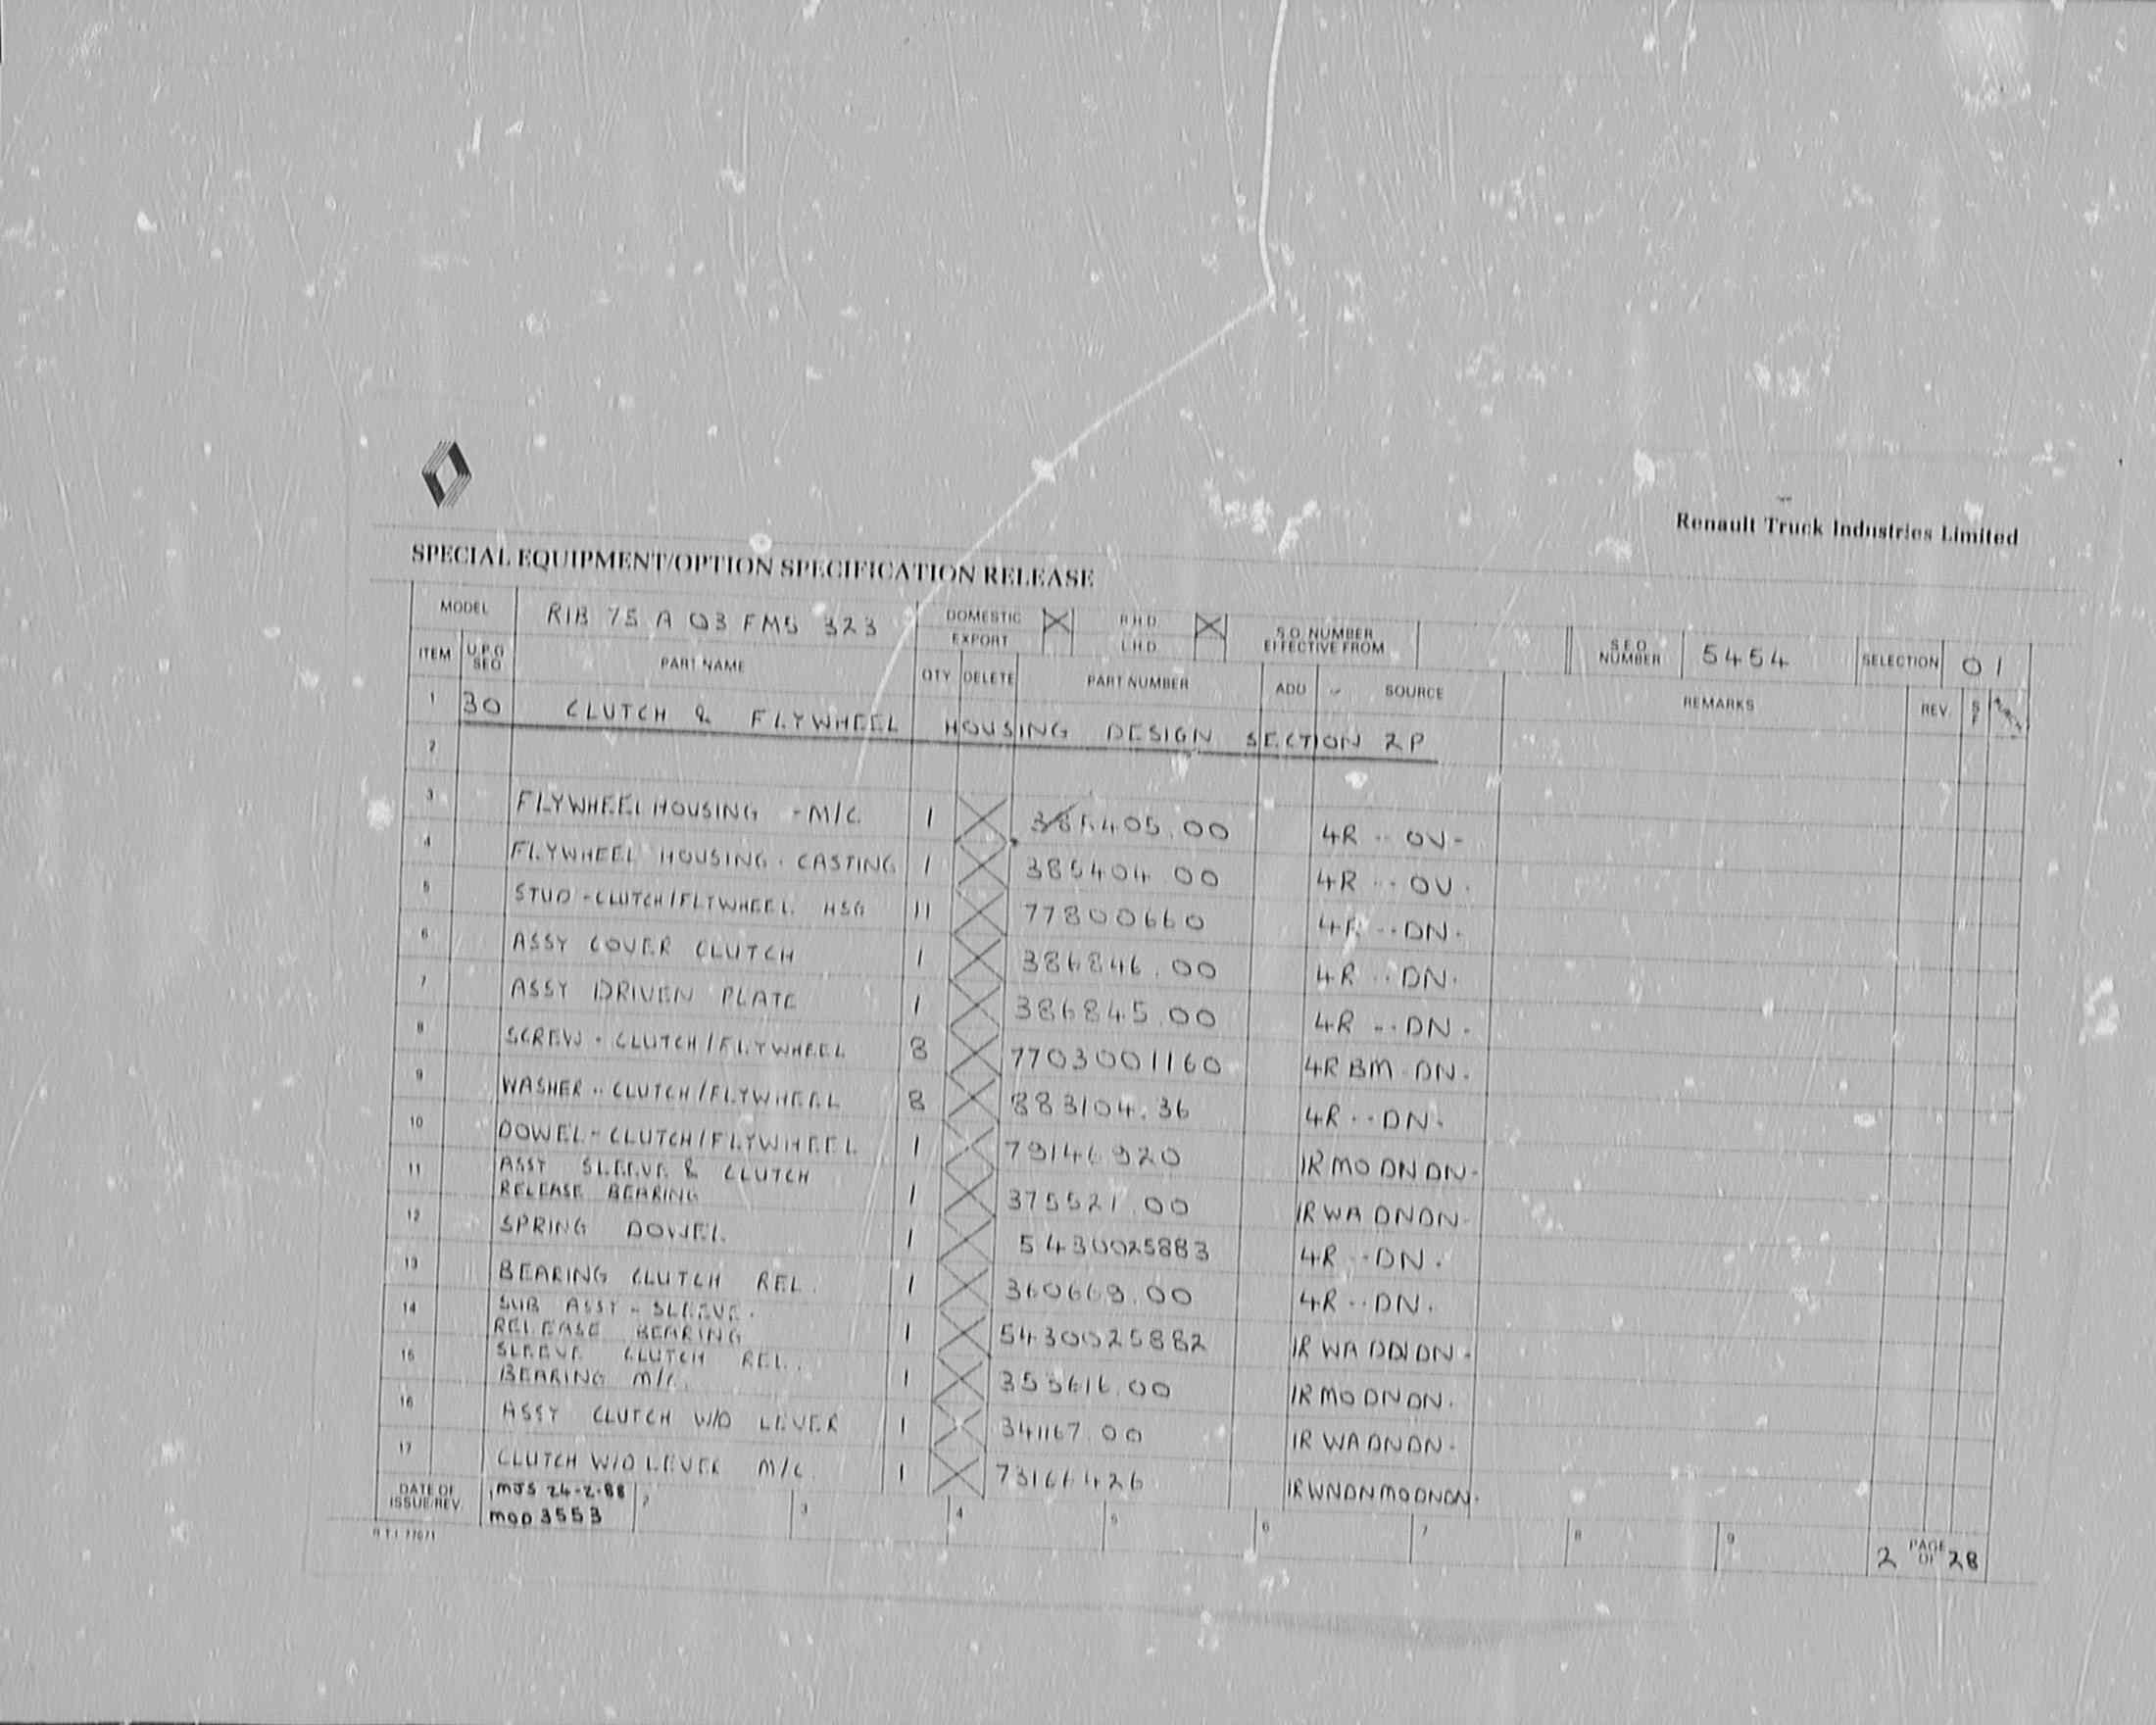 Renault Truck Industries Limited
SPECIAL EQUIPMENT/OPTION SPECIFICATION RELEASE
MODEL RIB 75 A 03 FMS 323 DOMESTIC EXPORT R.H.D. L.H.D. S.O. NUMBER EFFECTIVE FROM S.E.O. NUMBER 5454 SELECTION 01
ITEM U.P.G SEQ PART NAME QTY DELETE PART NUMBER ADD SOURCE REMARKS REV. S F
1 30 CLUTCH & FLYWHEEL HOUSING DESIGN SECTION 2P
2
3 FLYWHEEL HOUSING - M/C 1 385405.00 4R -- OV-
4 FLYWHEEL HOUSING - CASTING 1 385404.00 4R -- OV-
5 STUD - CLUTCH/FLYWHEEL HSG 11 77800660 4R -- DN-
6 ASSY COVER CLUTCH 1 386846.00 4R -- DN-
7 ASSY DRIVEN PLATE 1 386845.00 4R -- DN-
8 SCREW - CLUTCH/FLYWHEEL 8 7703001160 4R BM - DN-
9 WASHER - CLUTCH/FLYWHEEL 8 883104.36 4R -- DN-
10 DOWEL - CLUTCH/FLYWHEEL 1 79146920 IR MO DN DN-
11 ASSY SLEEVE & CLUTCH
RELEASE BEARING 1 375521.00 IR WA DN DN-
12 SPRING DOWEL 1 5430025883 4R -- DN-
13 BEARING CLUTCH REL. 1 360669.00 4R -- DN-
14 SUB ASSY - SLEEVE -
RELEASE BEARING 1 5430025882 IR WA DN DN-
15 SLEEVE CLUTCH REL.
BEARING M/C. 1 353616.00 IR MO DN DN-
16 ASSY CLUTCH W/O LEVER 1 341167.00 IR WA DN DN-
17 CLUTCH W/O LEVER M/C 1 73166426 IR WN DN MO DN DN-
DATE OF ISSUE/REV. MJS 24-2-88 2 3 4 5 6 7 8 9 2 PAGE OF 28
MOD 3553
R.T.I. 77071